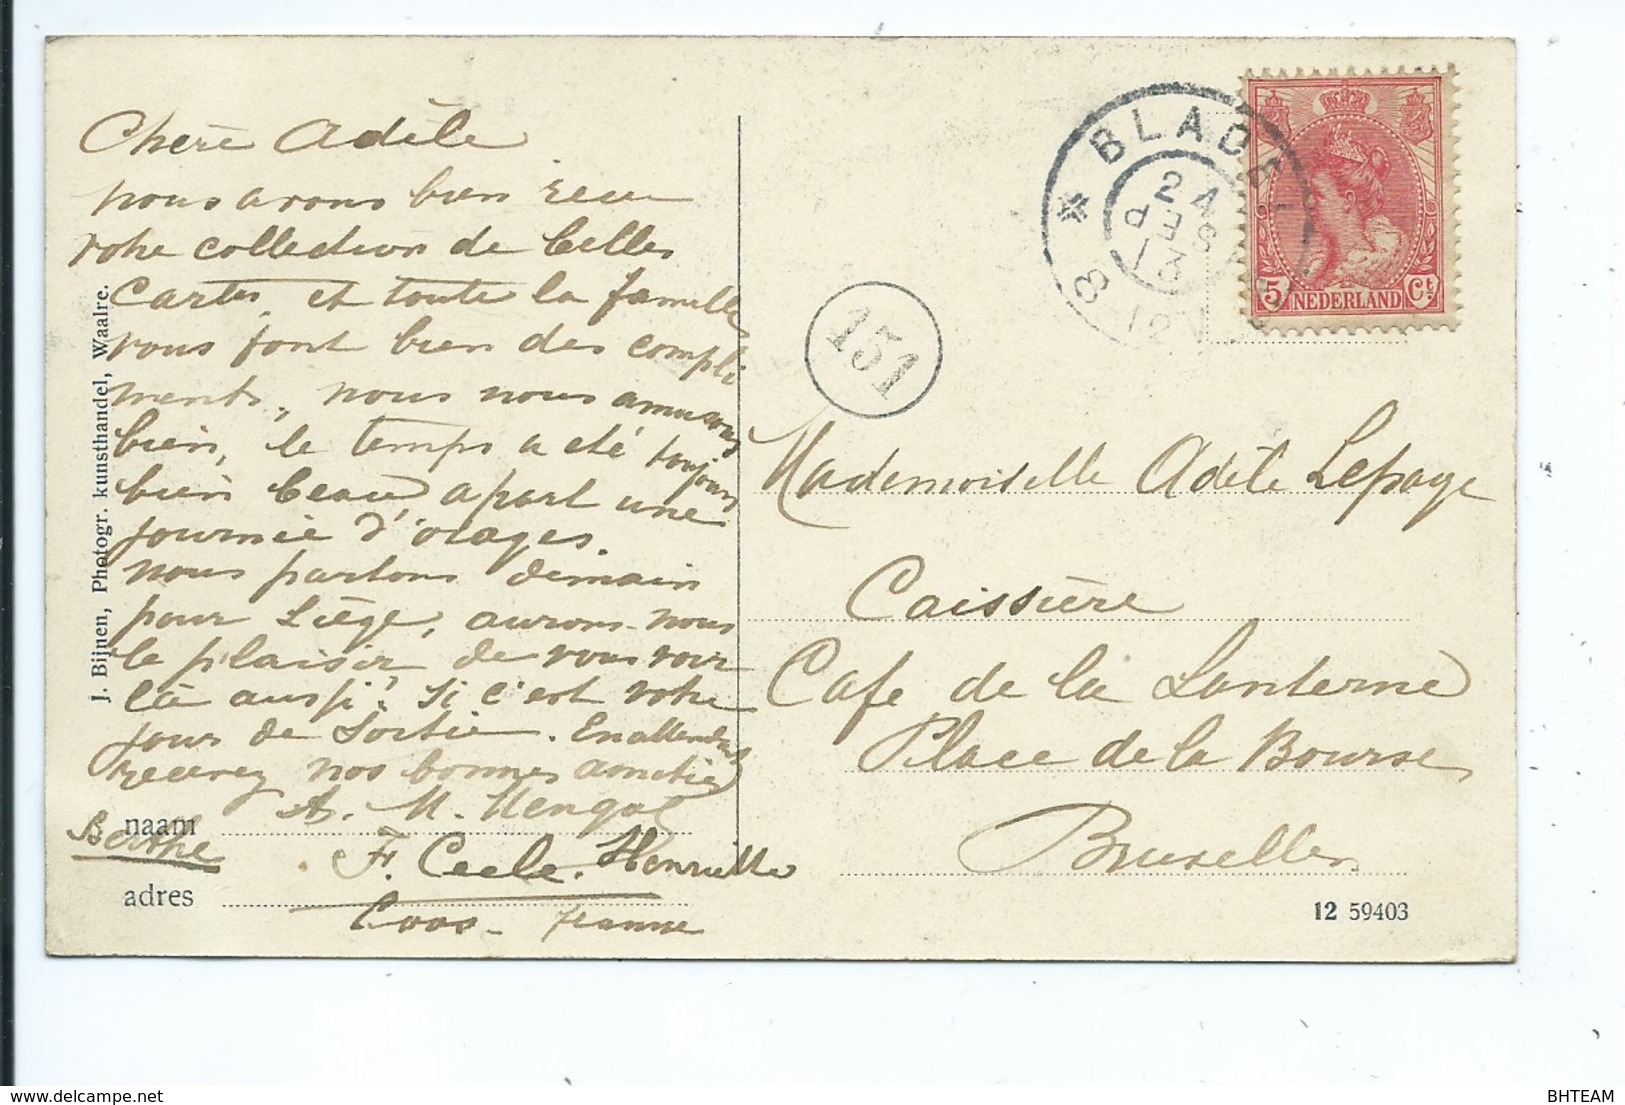 Chère Adèle
nous avons bien recu
votre collection de belles
Cartes, et toute la famille
vous font bien des compli
ments, nous nous amusons
bien, le temps a été toujours
bien beau, apart une
journée d'orages.
nous partons demain
pour Liège, aurons-nous
le plaisir, de vous voir
là aussi? si c'est votre
jour de Sortie. En attendant
recevez nos bonnes amitiés
A. M. Hengal
Berthe
F. Cecle. Henriette
Coos - Jeanne
naam
adres
J. Bijnen, Photogr. kunsthandel, Waalre.
BLADEL
24
SEP
13
8-12V
151
5 NEDERLAND Ct
Mademoiselle Adèle Lepage
Caissière
Cafe de la Lanterne
Place de la Bourse
Bruxelles
12 59403
BHTEAM